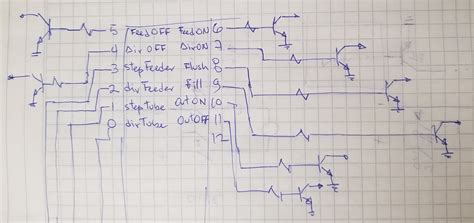 5 FeedOFF FeedON 6
4 DirOFF DirON 7
3 stepFeeder Flush 8
2 dirFeeder Fill 9
1 stepTube CutON 10
0 dirTube CutOFF 11
12